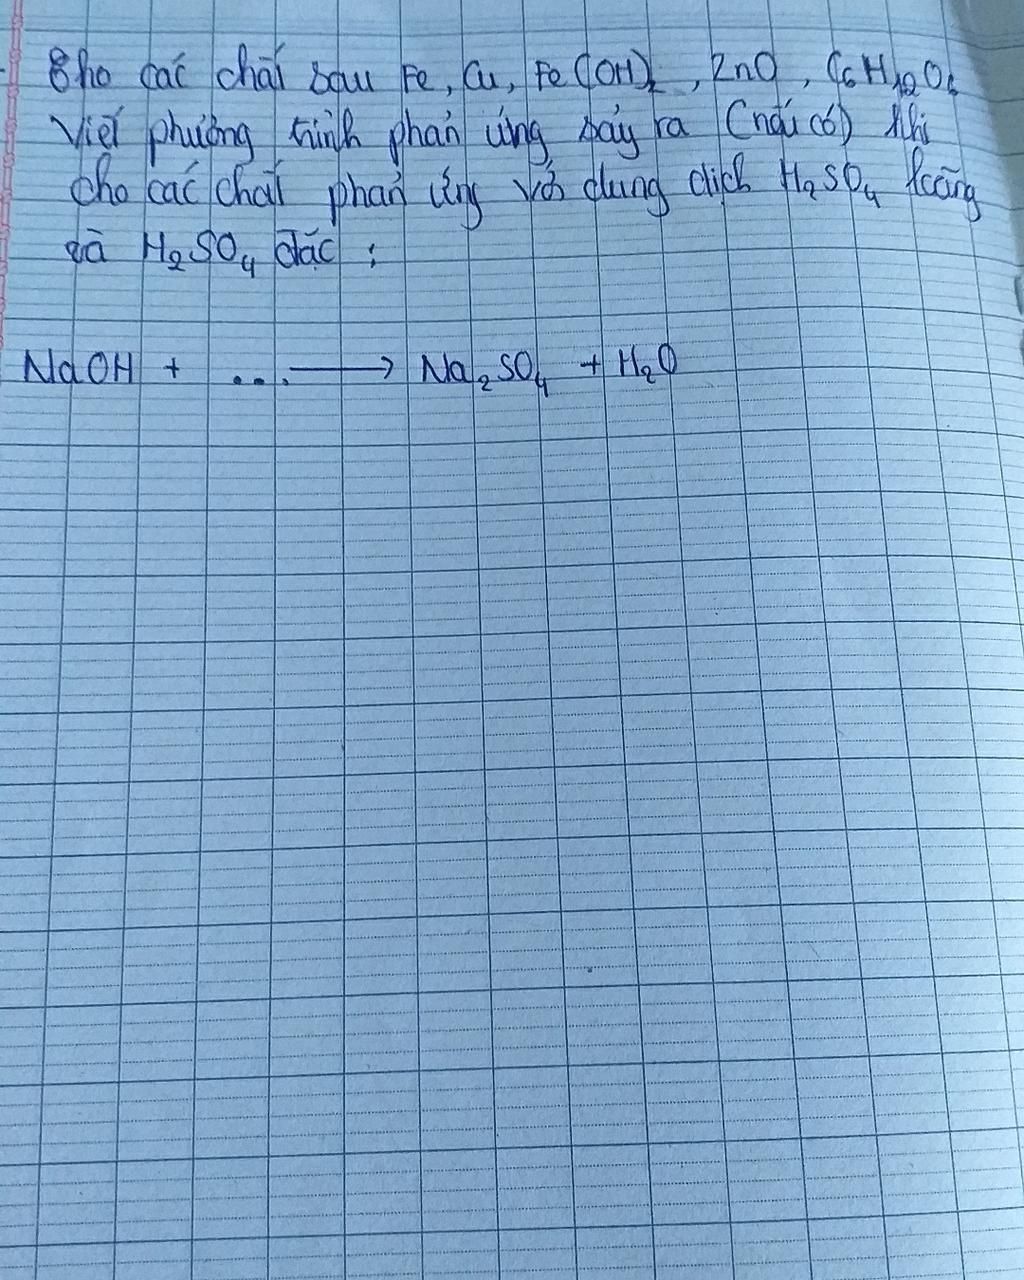 Cho các chất sau Fe, Cu, Fe(OH)₂, ZnO, C₆H₁₂O₆
Viết phương trình phản ứng xảy ra (nếu có) khi
cho các chất phản ứng với dung dịch H₂SO₄ loãng
và H₂SO₄ đặc :
NaOH + ... → Na₂SO₄ + H₂O